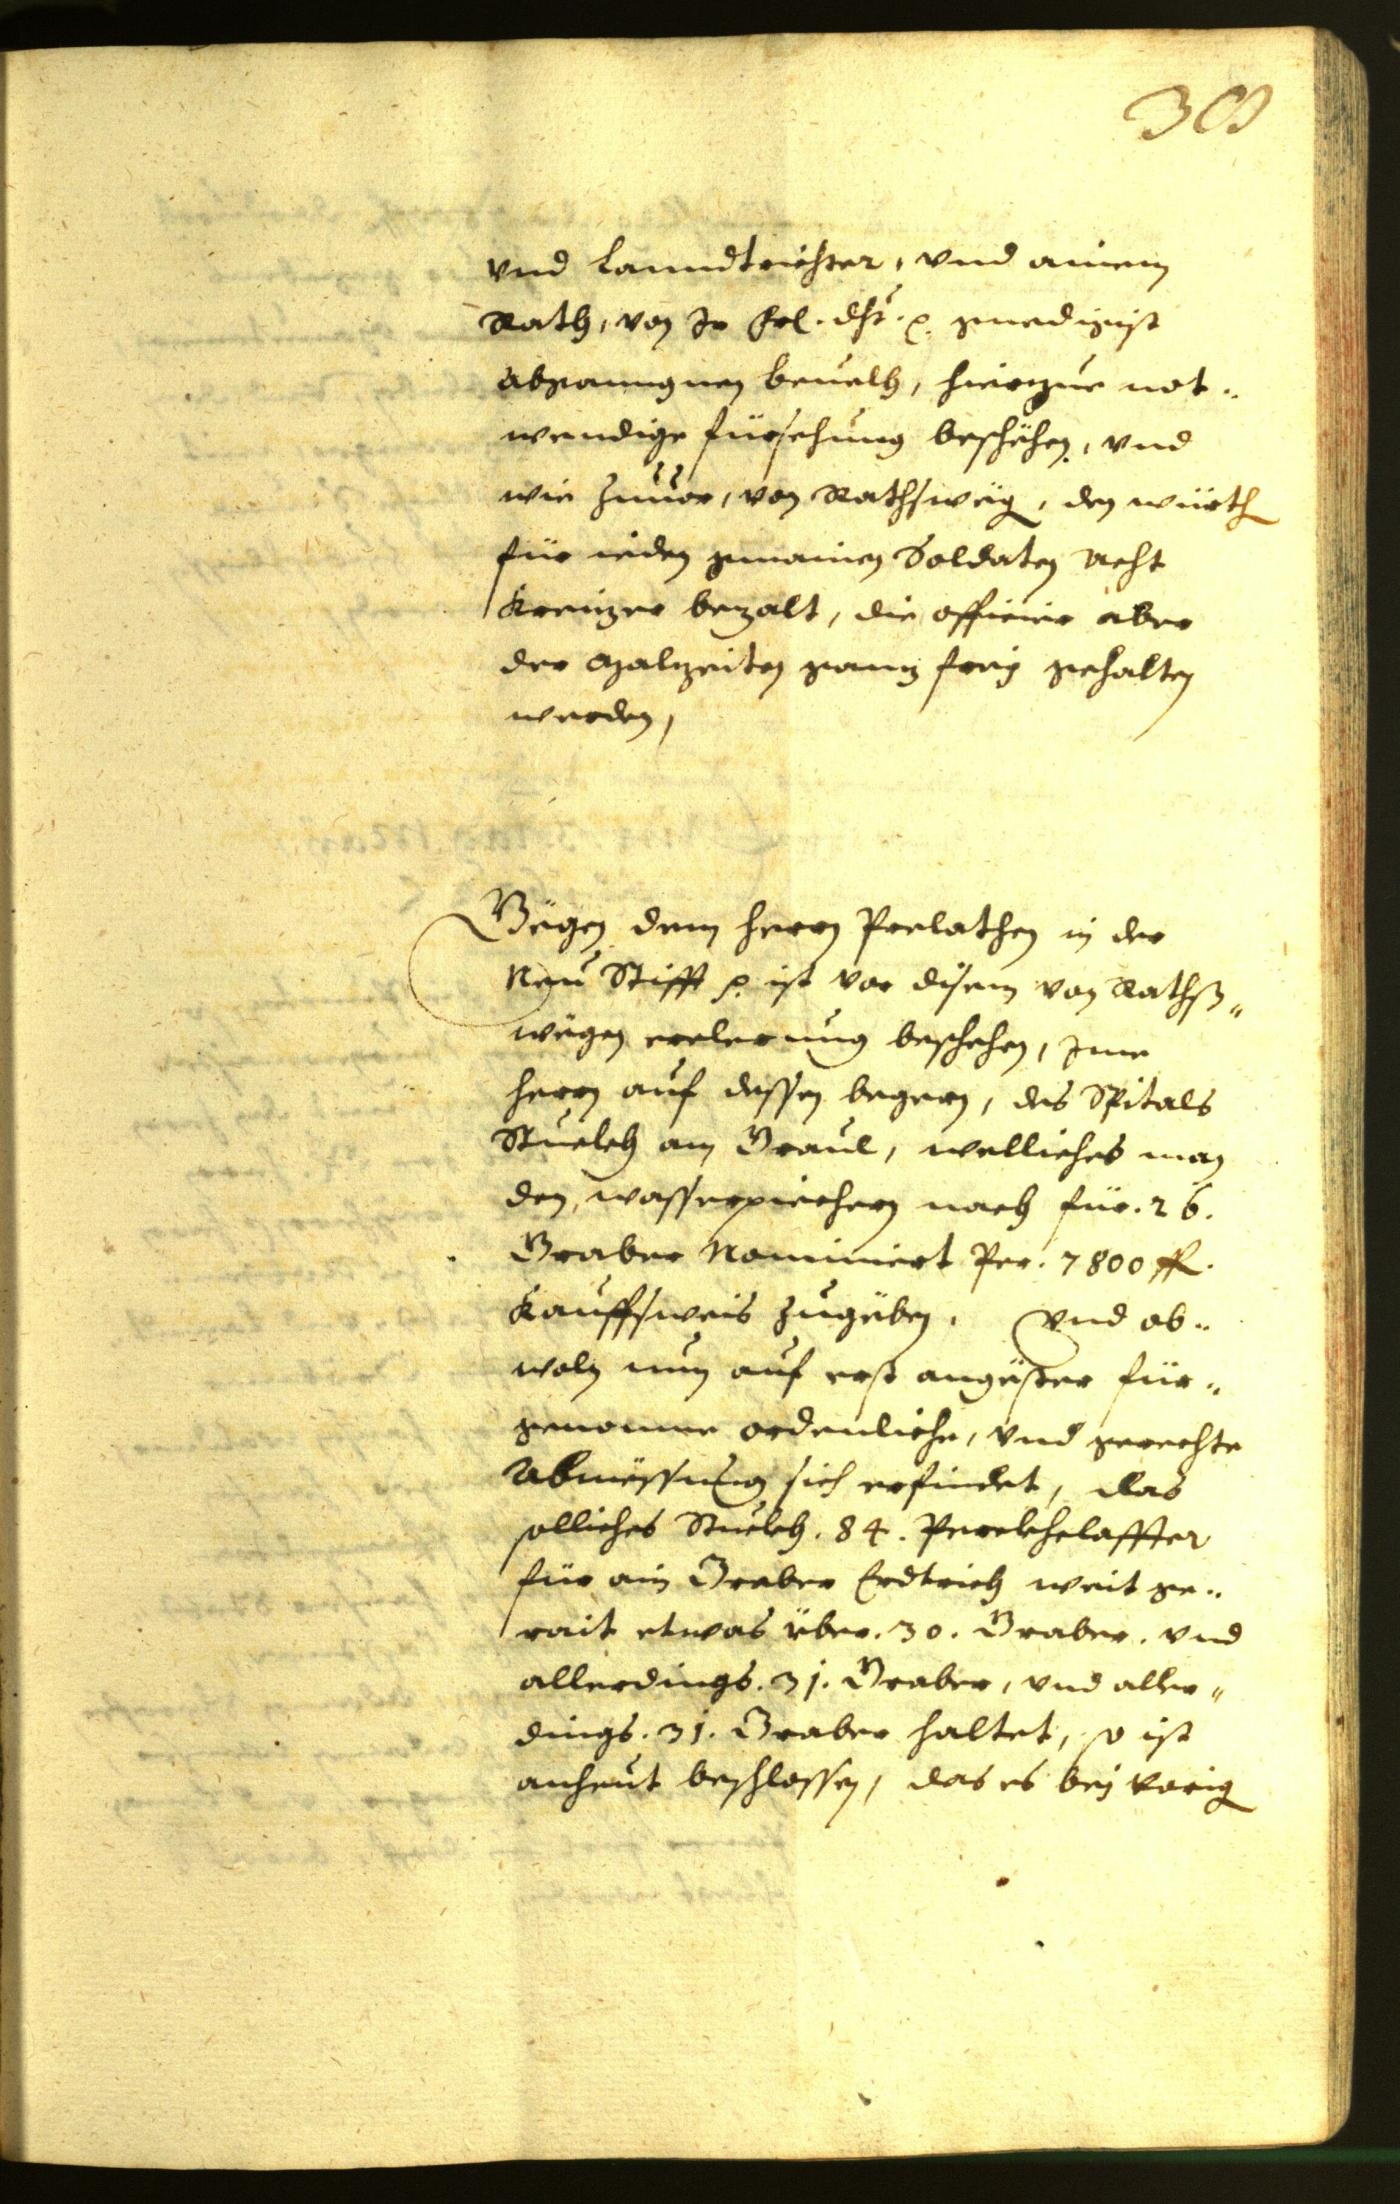 und Lanndtrichter, und ainem
Rath, von Ir Frl. dht. p. gnedigist
abganngnen beuelh, hierzue not„
wendige fürsehung beschëhen, vnd
wie zuuor, von Rathswëg, den würth
für ieden gmainen Soldaten Acht
Kreuzer bezalt, die officier aber
der Malzeiten ganz freÿ gehalten
werden,
Wëgen dem herrn Prelathen in der
Neu Stifft p. ist vor disem von Rathß„
wëgen erclerung beschehen, Ime
herrn auf dessen begern, des Spitals
Stuckh am Graul, welliches man
den, wasserpiethern nach für. 26.
Graber Nominiert Per. 7800 fl.
Kauffsweis zugëben. Vnd ob„
woln nun auf erst angëster für„
genomne ordenliche, vnd gerechte
Abmëssung sich erfindet, das
solliches Stuckh. 84. Perckhclaffter
für ain Graber Erdtrich weit ge„
rait etwas über. 30. Graber. vnd
allerdings. 31. Graber, vnd aller„
dings. 31. Graber haltet, so ist
anheut beschlossen, das es beÿ vorig